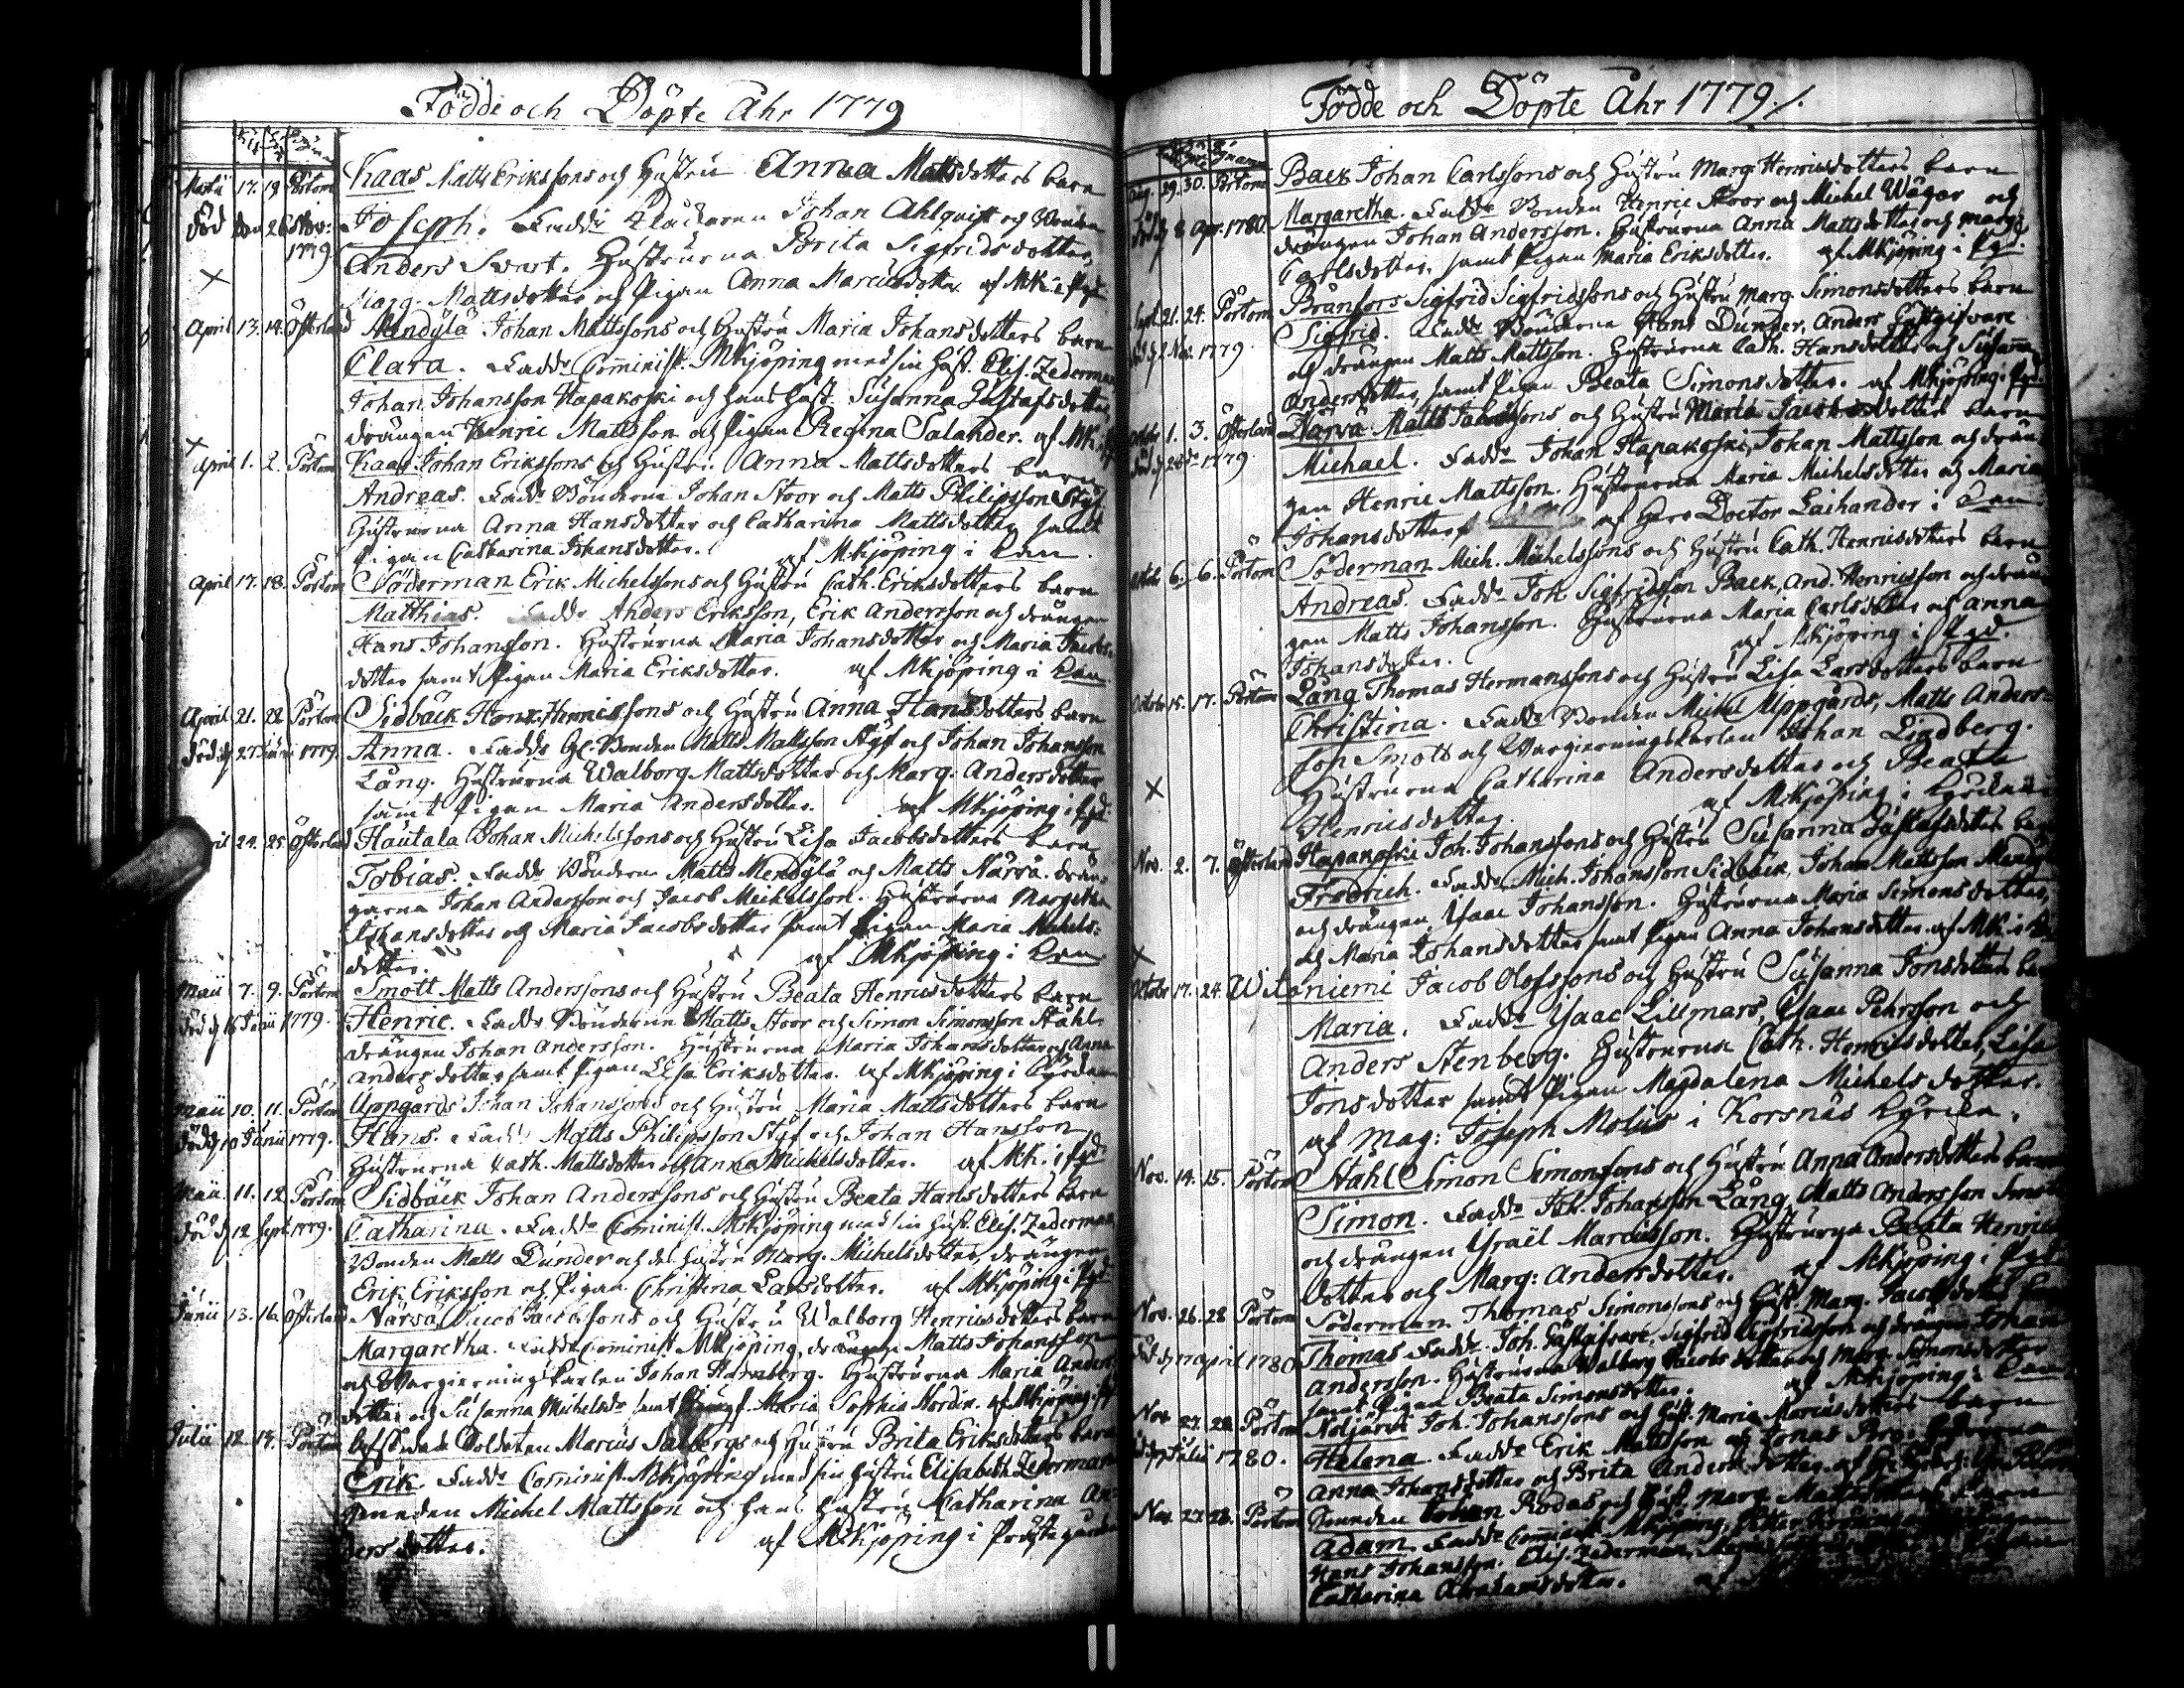 Födde och Döpte Åhr 1779
Martii 17. 19. Pörtom Kaas Matts Erikssons och Hustru Anna Mattsdotters barn
Död den 26 Nov: Joseph. Fadd: Klåckaren Johan Ahlqvist och Bonden
1779 Anders Swart. Hustrurna Brita Sigfridsdotter,
Marg. Mattsdotter och Pigan Anna Marcusdotter af MK i Pgd
April 13. 14. Österland Mendylä Johan Mattssons och Hustru Maria Johansdotters barn
Clara. Fadd: Comminist. MKjöping med sin Hust. Elis. Zederman
Johan Johansson Hapakoski och hans Hust. Susanna Gustafsdotter,
drängen Henric Mattsson och Pigan Regina Salander. af MK.
April 1. 2. Pörtom Kaas Johan Erikssons och Hustru Anna Mattsdotters barn
Andreas. Fadd: Bönderne Johan Stoor och Matts Philipsson Styf
Hustrurna Anna Hansdotter och Catharina Mattsdotter samt
Pigan Catharina Johansdotter. af MKjöping i Cam.
April 17. 18. Pörtom Söderman Erik Michelssons och Hustru Cath. Eriksdotters barn
Matthias. Fadd: Anders Eriksson, Erik Andersson och drängen
Hans Johansson. Hustrurna Maria Johansdotter och Maria Jacobs-
dotter samt Pigan Maria Eriksdotter. af MKjöping i Cam
April 21. 22. Pörtom Sidbäck Henr. Henricssons och Hustru Anna Hansdotters barn
Död d 27 Junii 1779. Anna. Fadd: Gl. Bonden Matts Mattsson Styf och Johan Johansson
Lång. Hustrurna Walborg Mattsdotter och Marg. Andersdotter
samt Pigan Maria Andersdotter. af MKjöping i Pgd.
April 24. 25. Österland Hautala Johan Michelssons och Hustru Lisa Jacobsdotters barn
Tobias. Fadd: Bönderne Matts Mendylä och Matts Närvä. drän-
garna Johan Andersson och Jacob Michelsson. Hustrurna Margetha
Johansdotter och Maria Jacobsdotter samt Pigan Maria Michels-
dotter. af MKjöping i Cam
Maii 7. 9. Pörtom Smott Matts Anderssons och Hustru Beata Henricsdotters barn
Död d 16 Junii 1779. Henric. Fadd: Bönderne Matts Stoor och Simon Simonsson Ståhl
drängen Johan Andersson. Hustrurna Maria Johansdotter och Anna
Andersdotter samt Pigan Lisa Eriksdotter. af MKjöping i Kyrckan
Maii 10. 11. Pörtom Uppgårds Johan Johanssons och Hustru Maria Mattsdotters barn
Död d 10 Junii 1779. Hans. Fadd: Matts Philipsson Styf och Johan Hansson
Hustrurna Cath. Mattsdotter och Anna Michelsdotter. af MK. i Pgd.
Maii. 11. 12. Pörtom Sidbäck Johan Anderssons och Hustru Beata Hansdotters barn
Död d 12 Sept. 1779. Catharina. Fadd: Cominist. MKjöping med sin Hust. Elis. Zederman
Bonden Matts Dunder och des Hustru Marg. Michelsdotter, drängen
Erik Eriksson och Pigan Christina Larsdotter. af MKjöping i Pgd
Junii 13. 16. Österland Närvä Jacob Jacobssons och Hustru Walborg Henricsdotters barn
Margaretha. Fadd: Cominist MKjöping, drängen Matts Johansson
och Wargierningskarlen Johan Hamberg. Hustrurna Maria Anders-
dotter och Susanna Michelsdr samt Jungf. Maria Sophia Nordin. af MKjöping i Pgd
Julii 12. 14. Pörtom Afskeda Soldaten Marcus Salbergs och Hustru Brita Eriksdotters barn
Erik. Fadd: Cominist. MKjöping med sin Hustru Elisabeth Zederman
Michel Mattsson och hans Hustru Catharina An-
dersdotter. af MKjöping i Prästegården
Födde och Döpte Åhr 1779./.
Aug. 29. 30. Pörtom Back Johan Carlssons och Hustru Marg Henricsdotters barn
Död d 8 Apr. 1780. Margaretha. Fadd: Bonden Henric Stoor och Michel Wägar och
drängen Johan Andersson. Hustrurna Anna Mattsdotter och Marg:
Carlsdotter, samt Pigan Maria Eriksdotter. af MKjöping i Pgd.
Sept. 21. 24. Pörtom Brånfors Sigfrid Sigfridssons och Hustru Marg. Simonsdotters barn
Död d 2 Nov. 1779. Sigfrid. Fadd: Bönderne Hans Dunder, Anders Gästgifvare
och drängen Matts Mattsson. Hustrurna Cath. Hansdotter och Susanna
Andersdotter, samt Pigan Beata Simonsdotter. af MKjöping i Pgd.
Octobr 1. 3. Österland Närvä Matts Jacobssons och Hustru Maria Jacobsdotters barn
1779. Michael. Fadd: Johan Hapakoski, Johan Mattsson och drän-
gen Henric Mattsson. Hustrurna Maria Michelsdotter och Maria
Johansdotter af Herr Doctor Laihander i Cam
Octobr 6. 6. Pörtom Söderman Mich. Michelssons och Hustru Cath. Henricsdotters barn
Andreas. Fadd: Joh. Sigfridsson Back, And. Henricsson och drän-
gen Matts Johansson. Hustrurna Maria Carlsdotter och Anna
Johansdotter. af MKjöping i Pgd.
Octobr 15. 17. Pörtom Lång Thomas Hermanssons och Hustru Lisa Larsdotters barn
Christina. Fadd: Bonden Michel Uppgårds, Matts Anders-
son Smott och Wargierningskarlen Johan Lindberg.
Hustrurna Catharina Andersdotter och Beata
Henricsdotter. af MKjöping i Kyrckan
Nov. 2. 7. Österland Hapakoski Joh. Johanssons och Hustru Susanna Gustafsdotters barn
Fredrich. Fadd: Mich. Johansson Sidbäck, Johan Mattsson Mendy
och drängen Isaac Johansson. Hustrurna Maria Simonsdotter,
och Maria Johansdotter samt Pigan Anna Johansdotter. af MK. i
Octobr 17. 24. Witaniemi Jacob Olofssons och Hustru Susanna Jonsdotters barn
Maria. Fadd: Isaac Lillmars, Isaac Pehrsson och
Anders Stenberg. Hustrurna Cath. Henricsdotter, Lisa
Jonsdotter samt Pigan Magdalena Michelsdotter.
af Mag: Joseph Molis i Korsnäs Kyrcka.
Nov. 14. 15. Pörtom Ståhl Simon Simonssons och Hustru Anna Andersdotters barn
Simon. Fadd: Joh. Johansson Lång, Matts Andersson Smott
och drängen Israël Marcusson. Hustrurna Beata Henrics-
dotter och Marg: Andersdotter. af MKjöping i Pgd
Nov. 26. 28. Pörtom Söderman Thomas Simonssons och Hust. Marg. Jacobsdotters barn
Död d 17 April 1780 Thomas Fadd: Joh. Gästgifvare, Sigfrid Sigfridsson och drängen Johan
Andersson. Hustrurna Walborg Jacobsdotter och Marg. Simonsdotter
samt Pigan Beata Simonsdotter. af MKjöping i Cam
Nov. 27. 28. Pörtom Noljärvi Joh. Johanssons och Hust. Maria Marcusdotters barn
Julii 1780. Helena. Fadd: Erik Mattsson och Jonas Hustrurna
Anna Johansdotter och Brita Andersdotter.
Nov. 27. 28. Pörtom Johan Rodas och Hust. Marg. Mattsdotters barn
Adam. Fadd: Cominist MKjöping,
Hans Johansson. Elis. Zederman,
Catharina Abrahamsdotter.